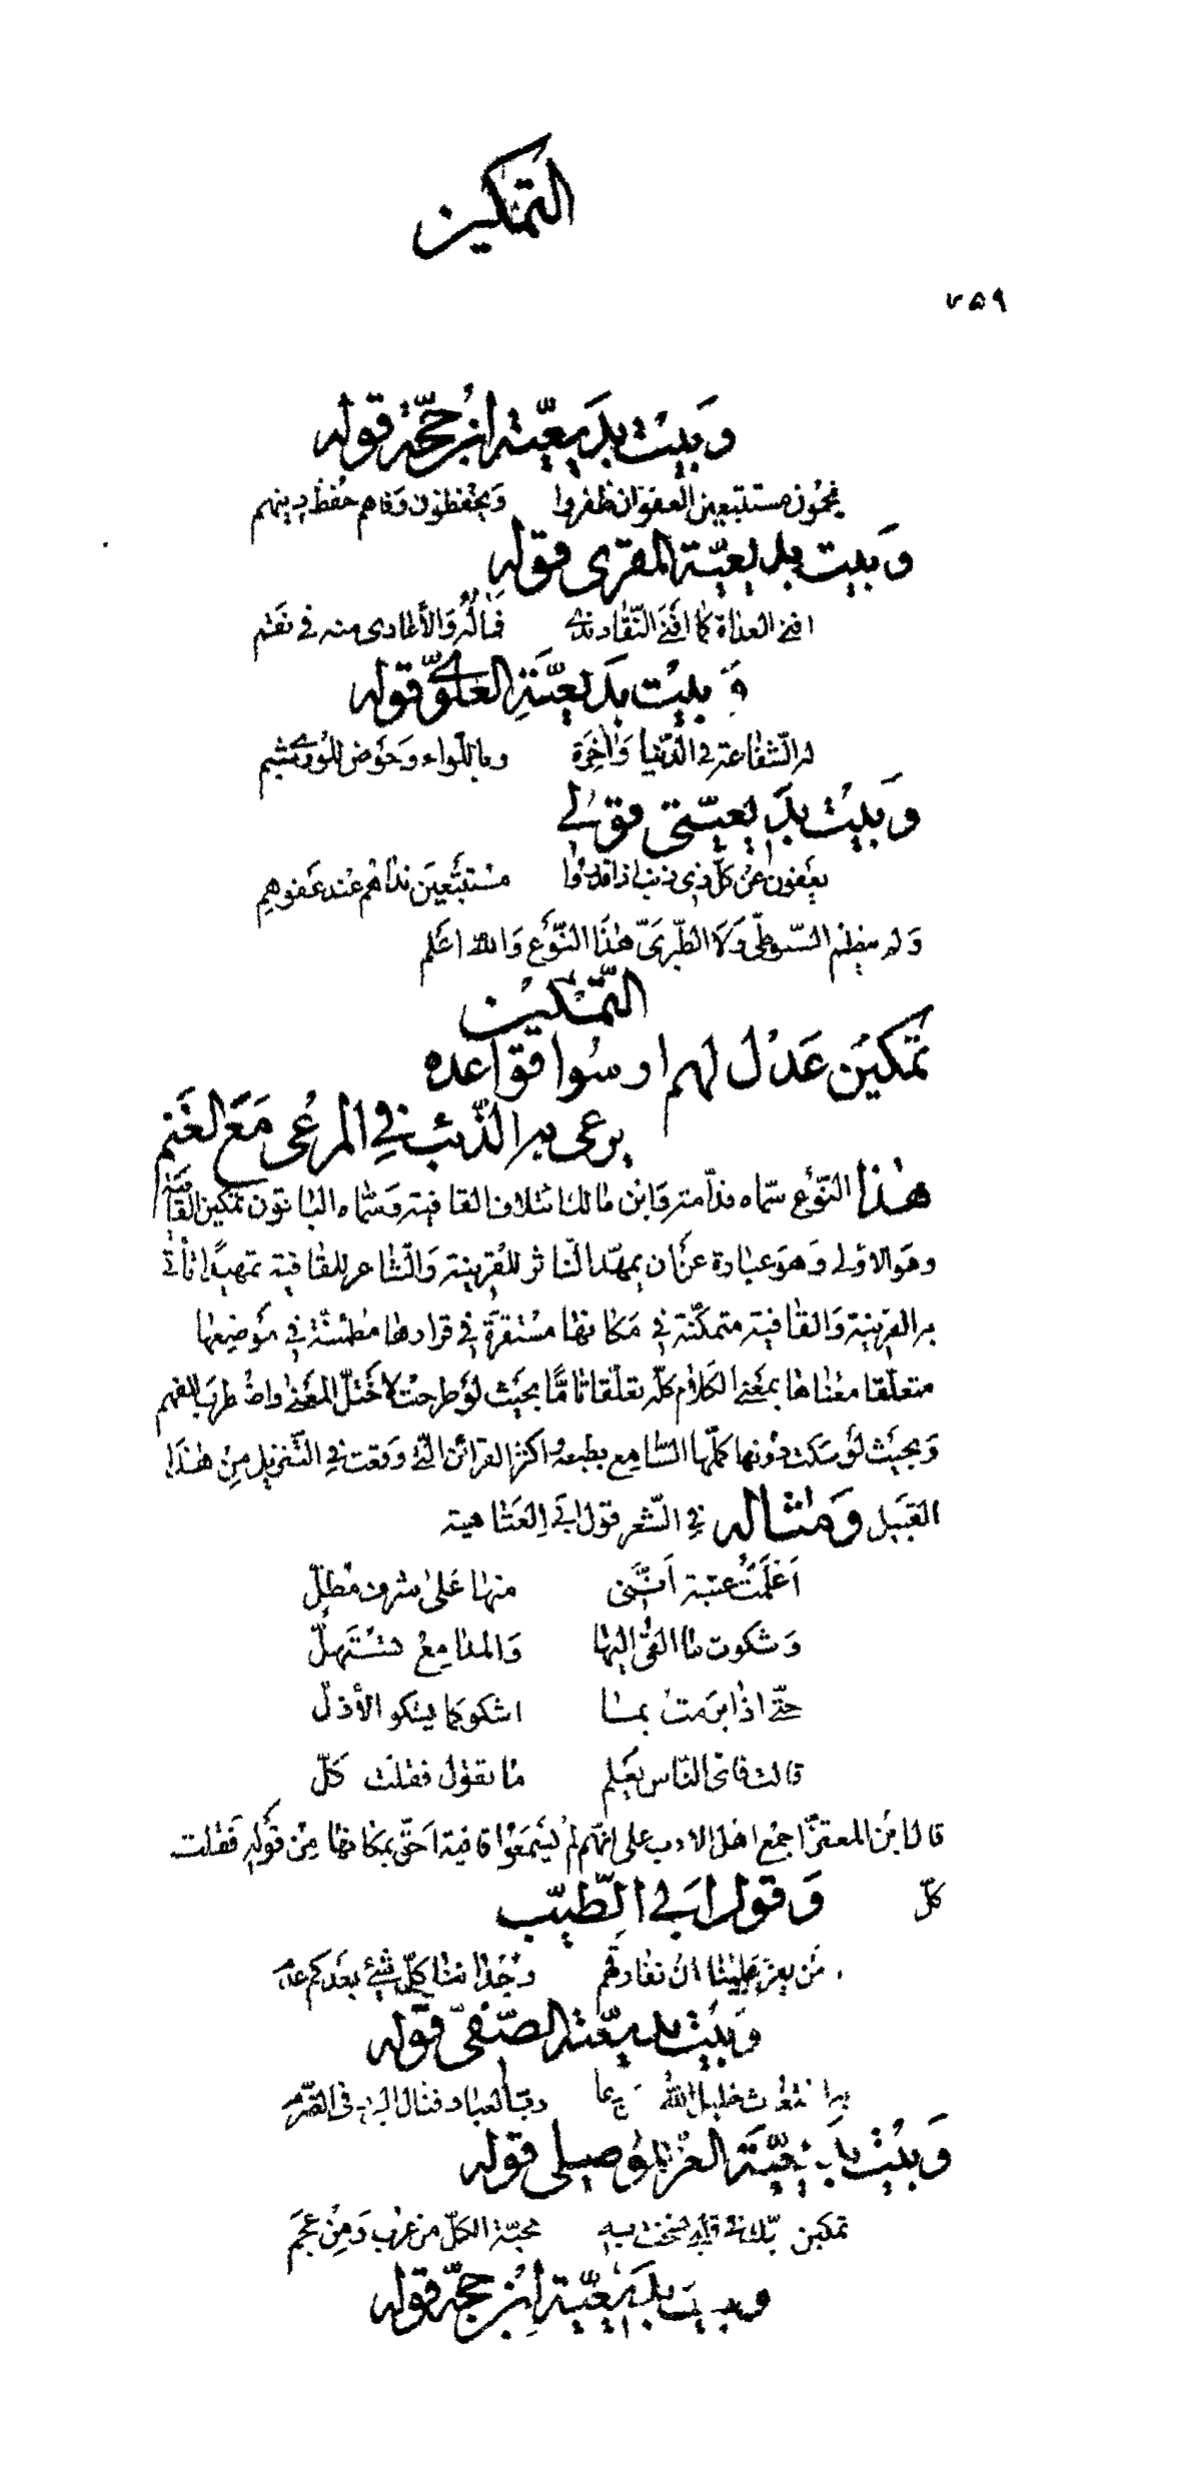 التمكين
٧٥٩
وبيت بديعيّة ابن حجّة قوله
يحمون مستتبعين العفو ان ظفروا ويحفظون وفاهم حفظ دينهم
وبيت بديعيّة المقرى قوله
افنى العداة كما افنى النّقاد ندى فماله والأعادى منه فى نقم
وبيت بديعيّة العلوىّ قوله
له الشّفاعة فى الدّنيا واخرة وباللّواء وحوض للورى شبم
وبيت بديعيّتى قولى
يعفون عن كلّ ذى ذنب اذا قدروا مستتبعين نداهم عند عفوهم
ولم ينظم السّيوطىّ ولا الطّبرىّ هذا النّوع والله اعلم
التّمكين
تمكين عدل لهم ارسوا قواعده
يرعى به الذّئب فى المرعى مع الغنم
هذا النّوع سمّاه قدامة وابن مالك ائتلاف القافية وسمّاه الباقون تمكين القافية
وهو الاولى وهو عبارة عن ان يمهّد النّاثر للقرينة والشّاعر للقافية تمهيدا تأتى
به القرينة والقافية متمكّنة فى مكانها مستقرّة فى قرارها مطمئنّة فى موضعها
متعلّقا معناها بمعنى الكلام كلّه تعلّقا تامّا بحيث لو طرحت لاختلّ المعنى واضطرب الفهم
وبحيث لو سكت دونها كمّلها السّامع بطبعه واكثر القرائن الّتى وقعت فى التّنزيل من هذا
القبيل ومثاله فى الشّعر قول ابى العتاهية
اعلمت عتبة انّنى منها على شرف مطلّ
وشكوت ما القى اليها والمدامع تستهلّ
حتّى اذا برمت بما اشكو كما يشكو الأذلّ
قالت فاىّ النّاس يعلم ما تقول فقلت كلّ
قال ابن المعتزّ اجمع اهل الادب على انّهم لم يسمعوا قافية احقّ بمكانها من قوله فقلت
كلّ وقول ابى الطّيّب
من يعزّ علينا ان نفارقهم وجداننا كلّ شىء بعدكم عدم
وبيت بديعيّة الصّفىّ قوله
به استغاث خليل الله دعا ربّ العباد فنال البرد فى الضّرم
وبيت بديعيّة العزّ الموصلى قوله
تمكين قلبه محبّة الكلّ من عرب ومن عجم
وبيت بديعيّة ابن حجّة قوله